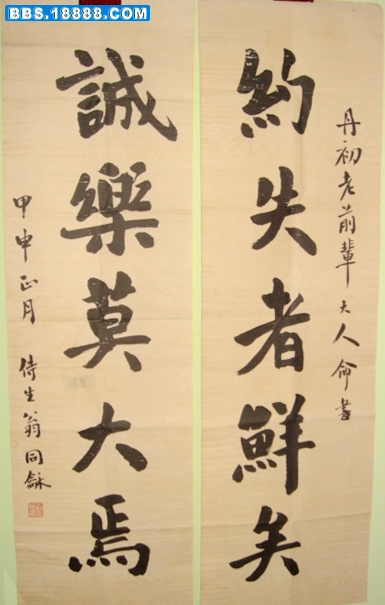 BBS.18888.COM
丹初老前輩大人命書
約失者鮮矣
誠樂莫大焉
甲申正月 侍生翁同龢